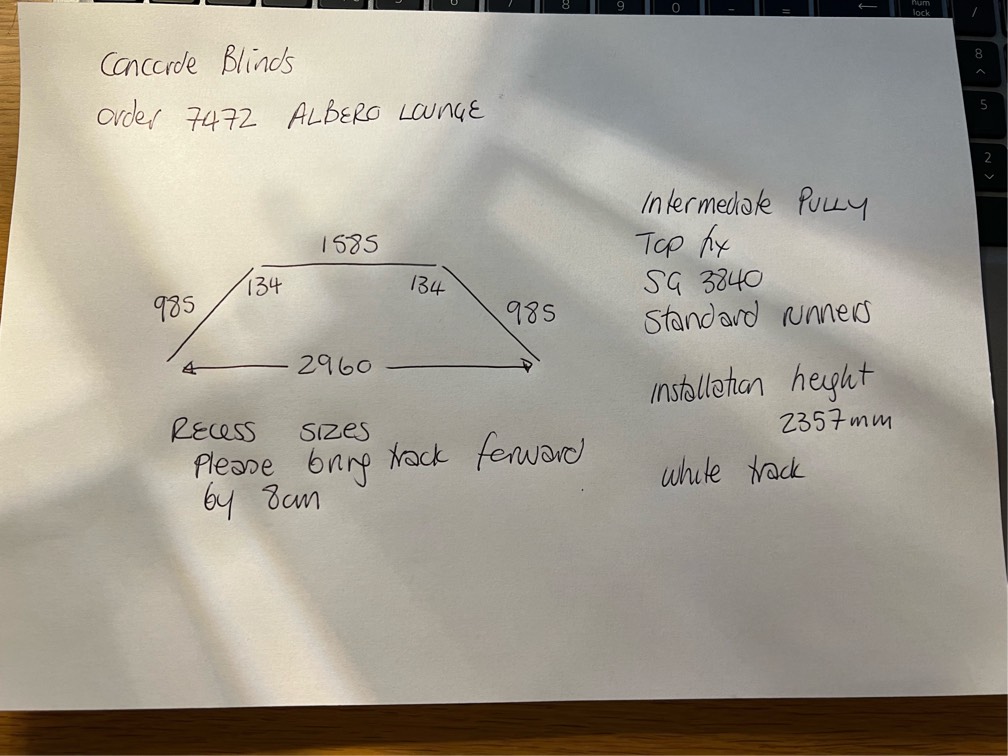 Concorde Blinds
Order 7472 ALBERO LOUNGE
1585
134
134
985
985
2960
RECESS SIZES
Please bring track forward
by 8cm
Intermediate PULLY
Top fix
SG 3840
Standard runners
installation height
2357mm
white track
num
lock
/
8
9
0
-
=
←
8
5
2